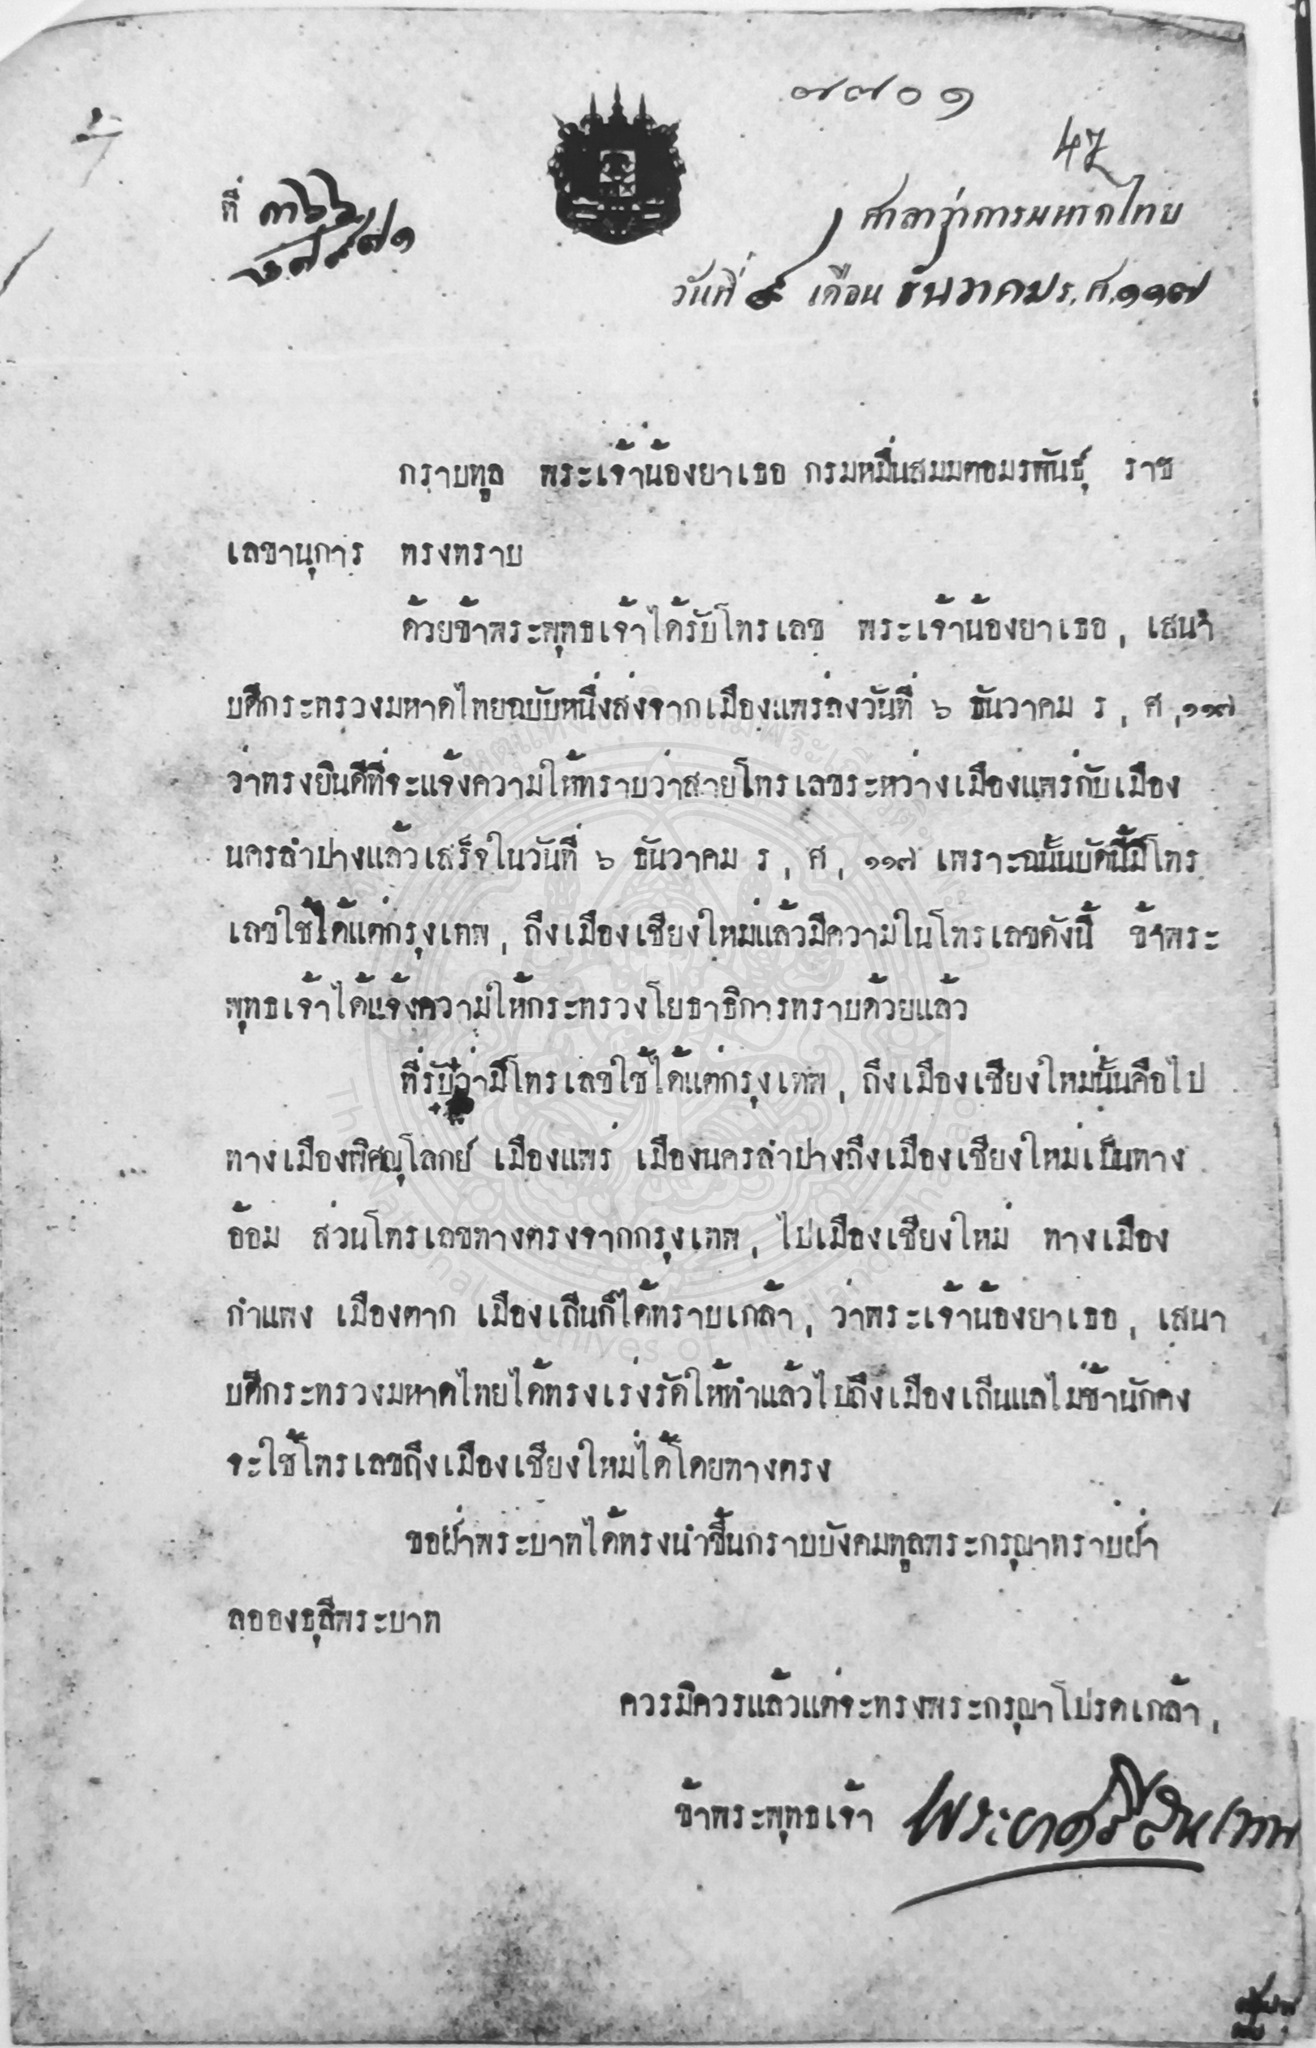 ๗๗๐๑
47
ที่ ๓๖๖
๒๗๙๗๑
ศาลาว่าการมหาดไทย
วันที่ ๙ เดือน ธันวาคม ร.ศ.๑๑๗
กราบทูล พระเจ้าน้องยาเธอ กรมหมื่นสมมตอมรพันธุ์ ราช
เลขานุการ ทรงทราบ
ด้วยข้าพระพุทธเจ้าได้รับโทรเลข พระเจ้าน้องยาเธอ, เสนา
บดีกระทรวงมหาดไทยฉบับหนึ่งส่งจากเมืองแพร่ลงวันที่ ๖ ธันวาคม ร, ศ, ๑๑๗
ว่าทรงยินดีที่จะแจ้งความให้ทราบว่าสายโทรเลขระหว่างเมืองแพร่กับเมือง
นครลำปางแล้วเสร็จในวันที่ ๖ ธันวาคม ร, ศ, ๑๑๗ เพราะฉนั้นบัดนี้มีโทร
เลขใช้ได้แต่กรุงเทพ, ถึงเมืองเชียงใหม่แล้วมีความในโทรเลขดังนี้ ข้าพระ
พุทธเจ้าได้แจ้งความให้กระทรวงโยธาธิการทราบด้วยแล้ว
ที่รับว่ามีโทรเลขใช้ได้แต่กรุงเทพ, ถึงเมืองเชียงใหม่นั้นคือไป
ทางเมืองพิศณุโลกย์ เมืองแพร่ เมืองนครลำปางถึงเมืองเชียงใหม่เป็นทาง
อ้อม ส่วนโทรเลขทางตรงจากกรุงเทพ, ไปเมืองเชียงใหม่ ทางเมือง
กำแพง เมืองตาก เมืองเถินก็ได้ทราบเกล้า, ว่าพระเจ้าน้องยาเธอ, เสนา
บดีกระทรวงมหาดไทยได้ทรงเร่งรัดให้ทำแล้วไปถึงเมืองเถินแลไม่ช้านักคง
จะใช้โทรเลขถึงเมืองเชียงใหม่ได้โดยทางตรง
ขอฝ่าพระบาทได้ทรงนำขึ้นกราบบังคมทูลพระกรุณาทราบฝ่า
ลอองธุลีพระบาท
ควรมิควรแล้วแต่จะทรงพระกรุณาโปรดเกล้า,
ข้าพระพุทธเจ้า พระยาศรีสหเทพ